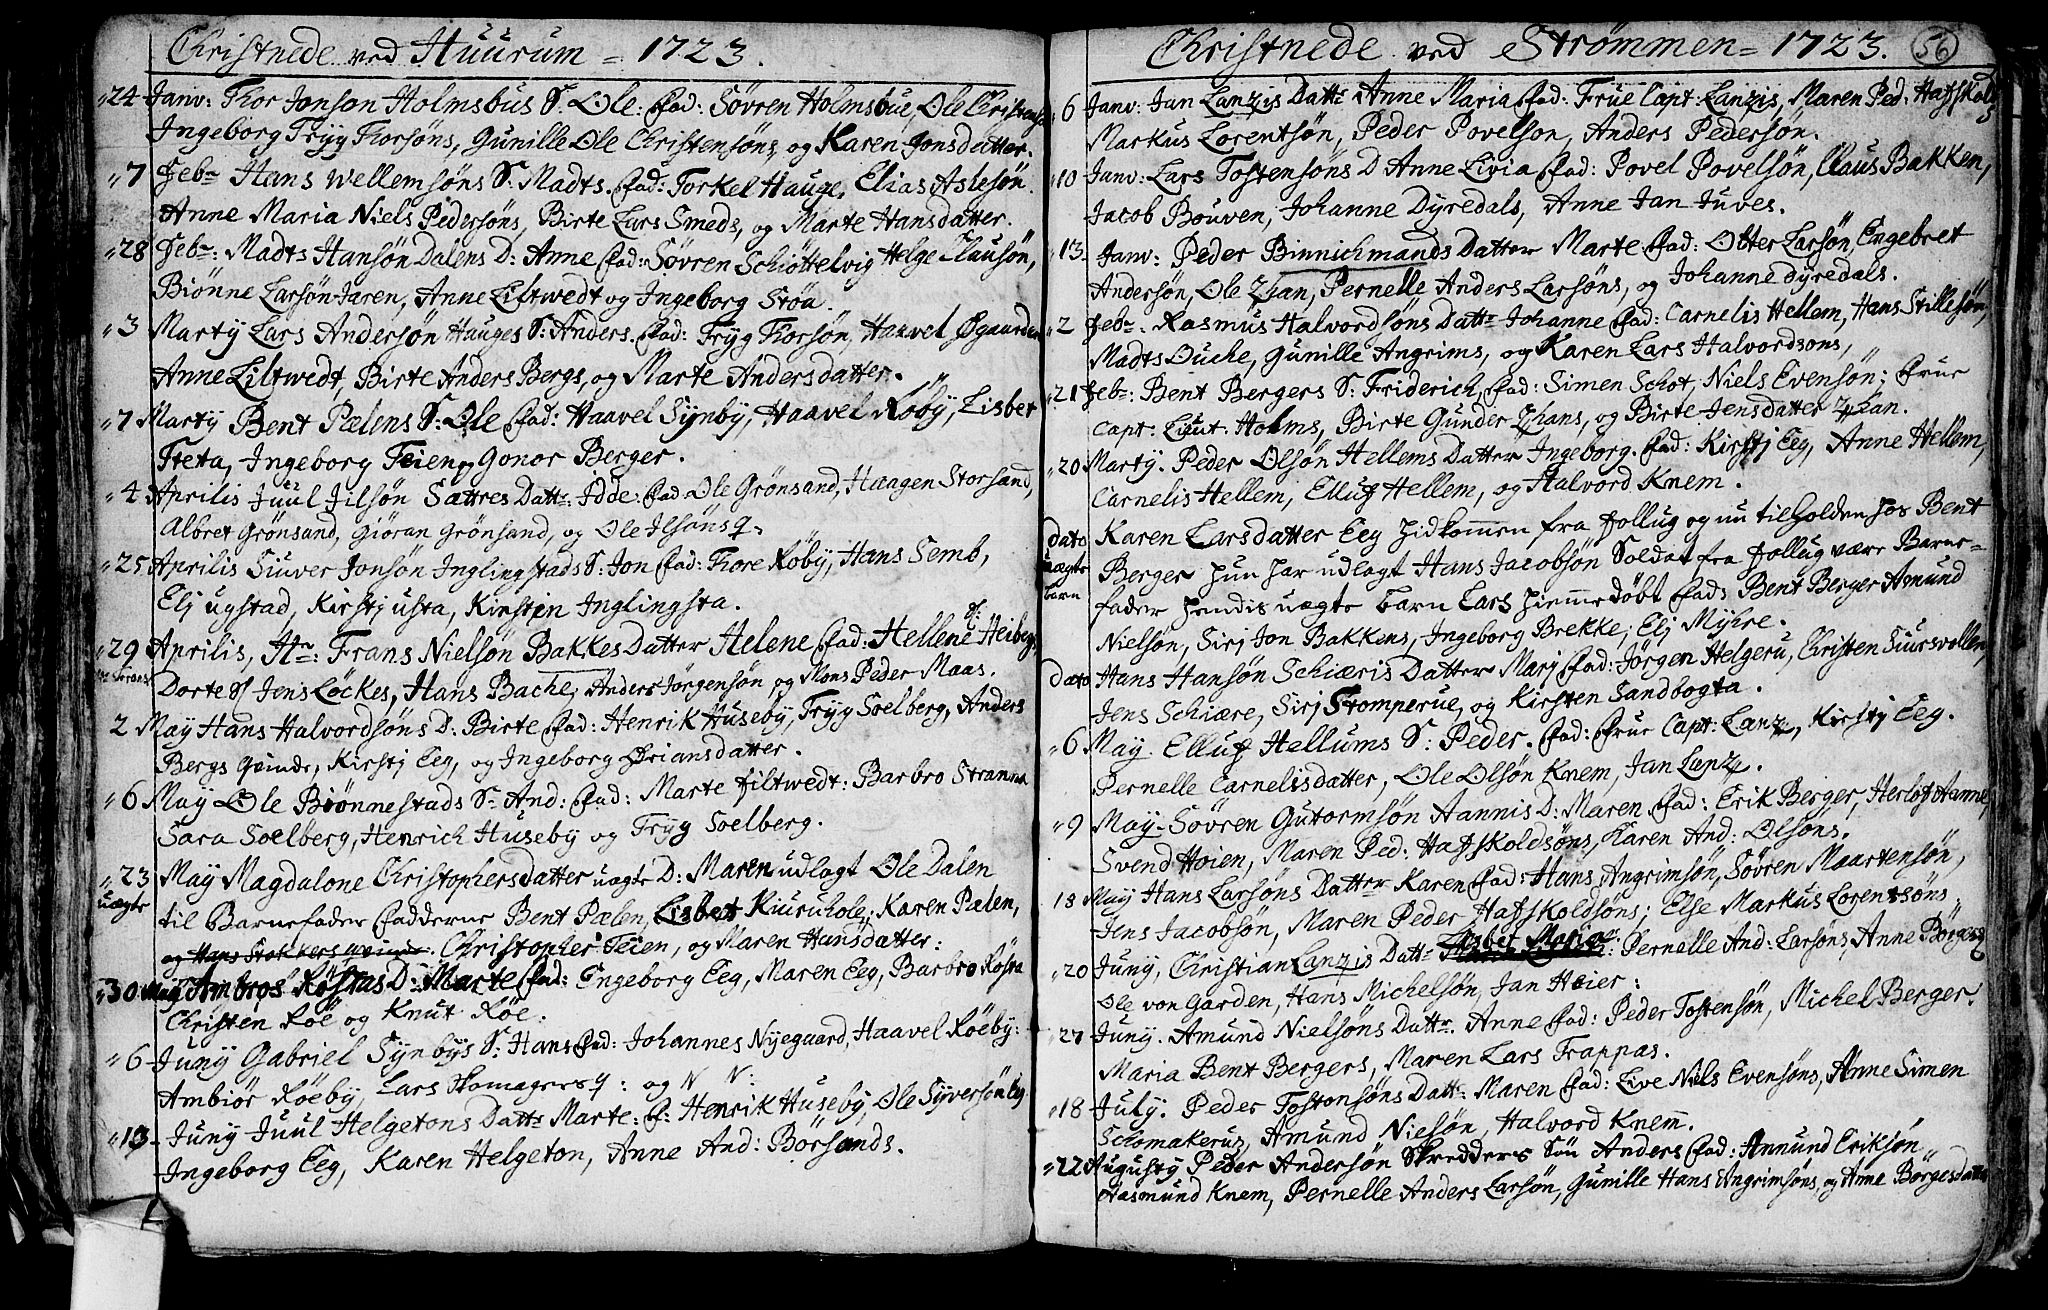 Christnede ved Húúrum = 1723.
"24 Janv: Thor Jonson Holmsbus S. Ole. fad: Søvren Holmsbue, Ole Christens
Ingeborg Tryg Thorsøns, Gunille Ole Christensøns, og Karen Jonsdatter.
"7 Febr Hans Wellemsøns S: Madts. fad: Torkel Hauge, Elias Aslesøn.
Anne Maria Niels Pedersøns, Birte Lars Smeds, og Marte Hansdatter.
"28 Febr: Madts Hansøn Dalens D: Anne fad: Søvren Schiøttelvig Helge Clausøn,
Biønne Larsøn Jaren, Anne Liltwedt og Ingeborg Støa.
"3 Marty Lars Andersøn Hauges S: Anders. fad: Tryg Thorsøn, Haavel Øgaarden
Anne Liltwedt, Birte Anders Bergs, og Marte Andersdatter.
"7 Marty Bent Pælens S: Ole fad: Haavel Synby, Haavel Røby, Lisbet
Treta, Ingeborg Teien, Gonor Berger.
"4 Aprilis Juul Jilsøn Sættres Datt: Idde: fad Ole Grønsand, Haagen Storsand,
Albret Grønsand, Giøran Grønsand, og Ole Ilsøns q.
"25 Aprilis Siuver Jonsøn Inglingstads S: Jon fad: Thore Røby, Hans Semb,
Elj ugstad, Kirstj usta, Kirsten Inglingsta.
"29 Aprilis, Hr: Frans Nielsøn Bakkes Datter Helene fad: Hellene Heiberg
Dorte Sl Jens Løckes, Hans Bache, Anders Jørgensøn og Mons Peder Maas.
2 May Hans Halvordsøns D: Birte fad: Henrik Huseby, Tryg Soelberg, Anders
Bergs Qvinde, Kirstj Eeg, og Ingeborg Øriansdatter.
"6 May Ole Biønnestads S: And: fad: Marte filtwedt: Barbro Stranna
Sara Soelberg, Henrich Huseby og Tryg Soelberg.
"23 May Magdalone Christophersdatter uægte D: Maren udlagt Ole Dalen
uægte til Barnefader fadderne Bent Pælen, Lisbet Kiuruhole; Karen Pælen,
og Hans Stokkers Qvinde. Christopher Teien, og Maren Hansdatter:
"30 May Ambros Røstas D: Marte fad: Ingeborg Eeg, Maren Eeg, Barbro Røsta
Christen Røe og Knut Røe.
"6 Juny Gabriel Synbys S: Hans fad: Johannes Nyegaard, Haavel Røeby:
Ambiør Røeby, Lars Homagers q: og N N:
"13 Juny Juul Helgetons Datt: Marte: f: Henrik Huseby, Ole Syversønby
Ingeborg Eeg, Karen Helgeton, Anne And: Børsands.
Christnede ved Strømmen = 1723. 56
"6 Janv: Jan Lanzis Datt: Anne Maria fad: Frue Capt: Lanzis, Maren Ped: Hafskolds
Markus Lorentsøn, Peder Povelson, Anders Pedersøn.
"10 Janv: Lars Tostensøns D Anne Livia fad: Povel Povelsøn, Claus Bakken,
Jacob Bouven, Johanne Dyredals, Anne Jan Juves.
"13 Janv: Peder Binnichmands Datter Marte fad: Otter Larsøn, Engebret
Andersøn, Ole Zhan, Pernelle Anders Larsøns, og Johanne dyredals.
"2 Febr: Rasmus Halvordsøns Datt: Johanne fad: Carnelis Hellem, Hans Stillesøn,
Madts Ouche, Gunille Angrims, og Karen Lars Halvordsons,
"21 Feb: Bent Bergers S: Friderich, fad: Simen Schot, Niels Evensøn; frue
Capt: Lieut: Holms, Birte Gunder Zhans, og Birte Jensdatter Zhan.
"20 Marty. Peder Olsøn Hellems Datter Ingeborg. fad: Kirstj Eeg, Anne Hellem,
Carnelis Hellem, Elluf Hellem, og Halvord Knem.
dato Karen Larsdatter Eeg hidkommen fra follug og nu tilholden hos Bent
uægte Berger hun har udlagt Hans Jacobsøn Soldat fra follug være Barne=
barn fader hendis uægte barn Lars hiemmedøbt fad: Bent Berger Amund
Nielsøn, Sirj Jon Bakkens, Ingeborg Brekke; Elj Myhre.
Dato Hans Hansøn Schiæris Datter Marj fad: Jørgen Helgeru, Christen Siursvollen,
Jens Schiære, Sirj Stomperue, og Kirsten Sandbogta.
"6 May. Elluf Hellums S: Peder. fad: frue Capt: Lanz, Kirstj Eeg.
Pernelle Carnelisdatter, Ole Olsøn Knem, Jan Lanz.
"9 May. Søvren Gutormsøn Hannis D: Maren fad: Erik Berger, Herlof Hanne,
Svend Høien, Maren Ped: Hafskoldsøns, Karen And: Olsøns.
18 May Hans Larsøns Datter Karen fad: Hans Angrimsøn, Søvren Maartensøn,
Jens Jacobsøn, Maren Peder Hafskoldsøns; Else Markus Lorentsøns
"20 Juny, Christian Lanzis Datt: Lisbet Maria: Pernelle And: Larsøns, Anne Børgers
Ole von Garden, Hans Michelsøn, Jan Heier:
"27 Juny. Amund Nielsøns Datt: Anne fad: Peder Tostensøn, Michel Berger.
Maria Bent Bergers, Maren Lars Trappas.
"18 July. Peder Tostonsøns Datt: Maren fad: Live Niels Evensøns, Anne Simen
Schomakerus, Amund Nielsøn, Halvord Knem.
"22 Augusty Peder Andersøn Skredders Søn Anders fad: Anmund Eriksøn
Aasmund Knem, Pernelle Anders Larsøn, Gunille Hans Angrimsøns, og Anne Børgesdatter